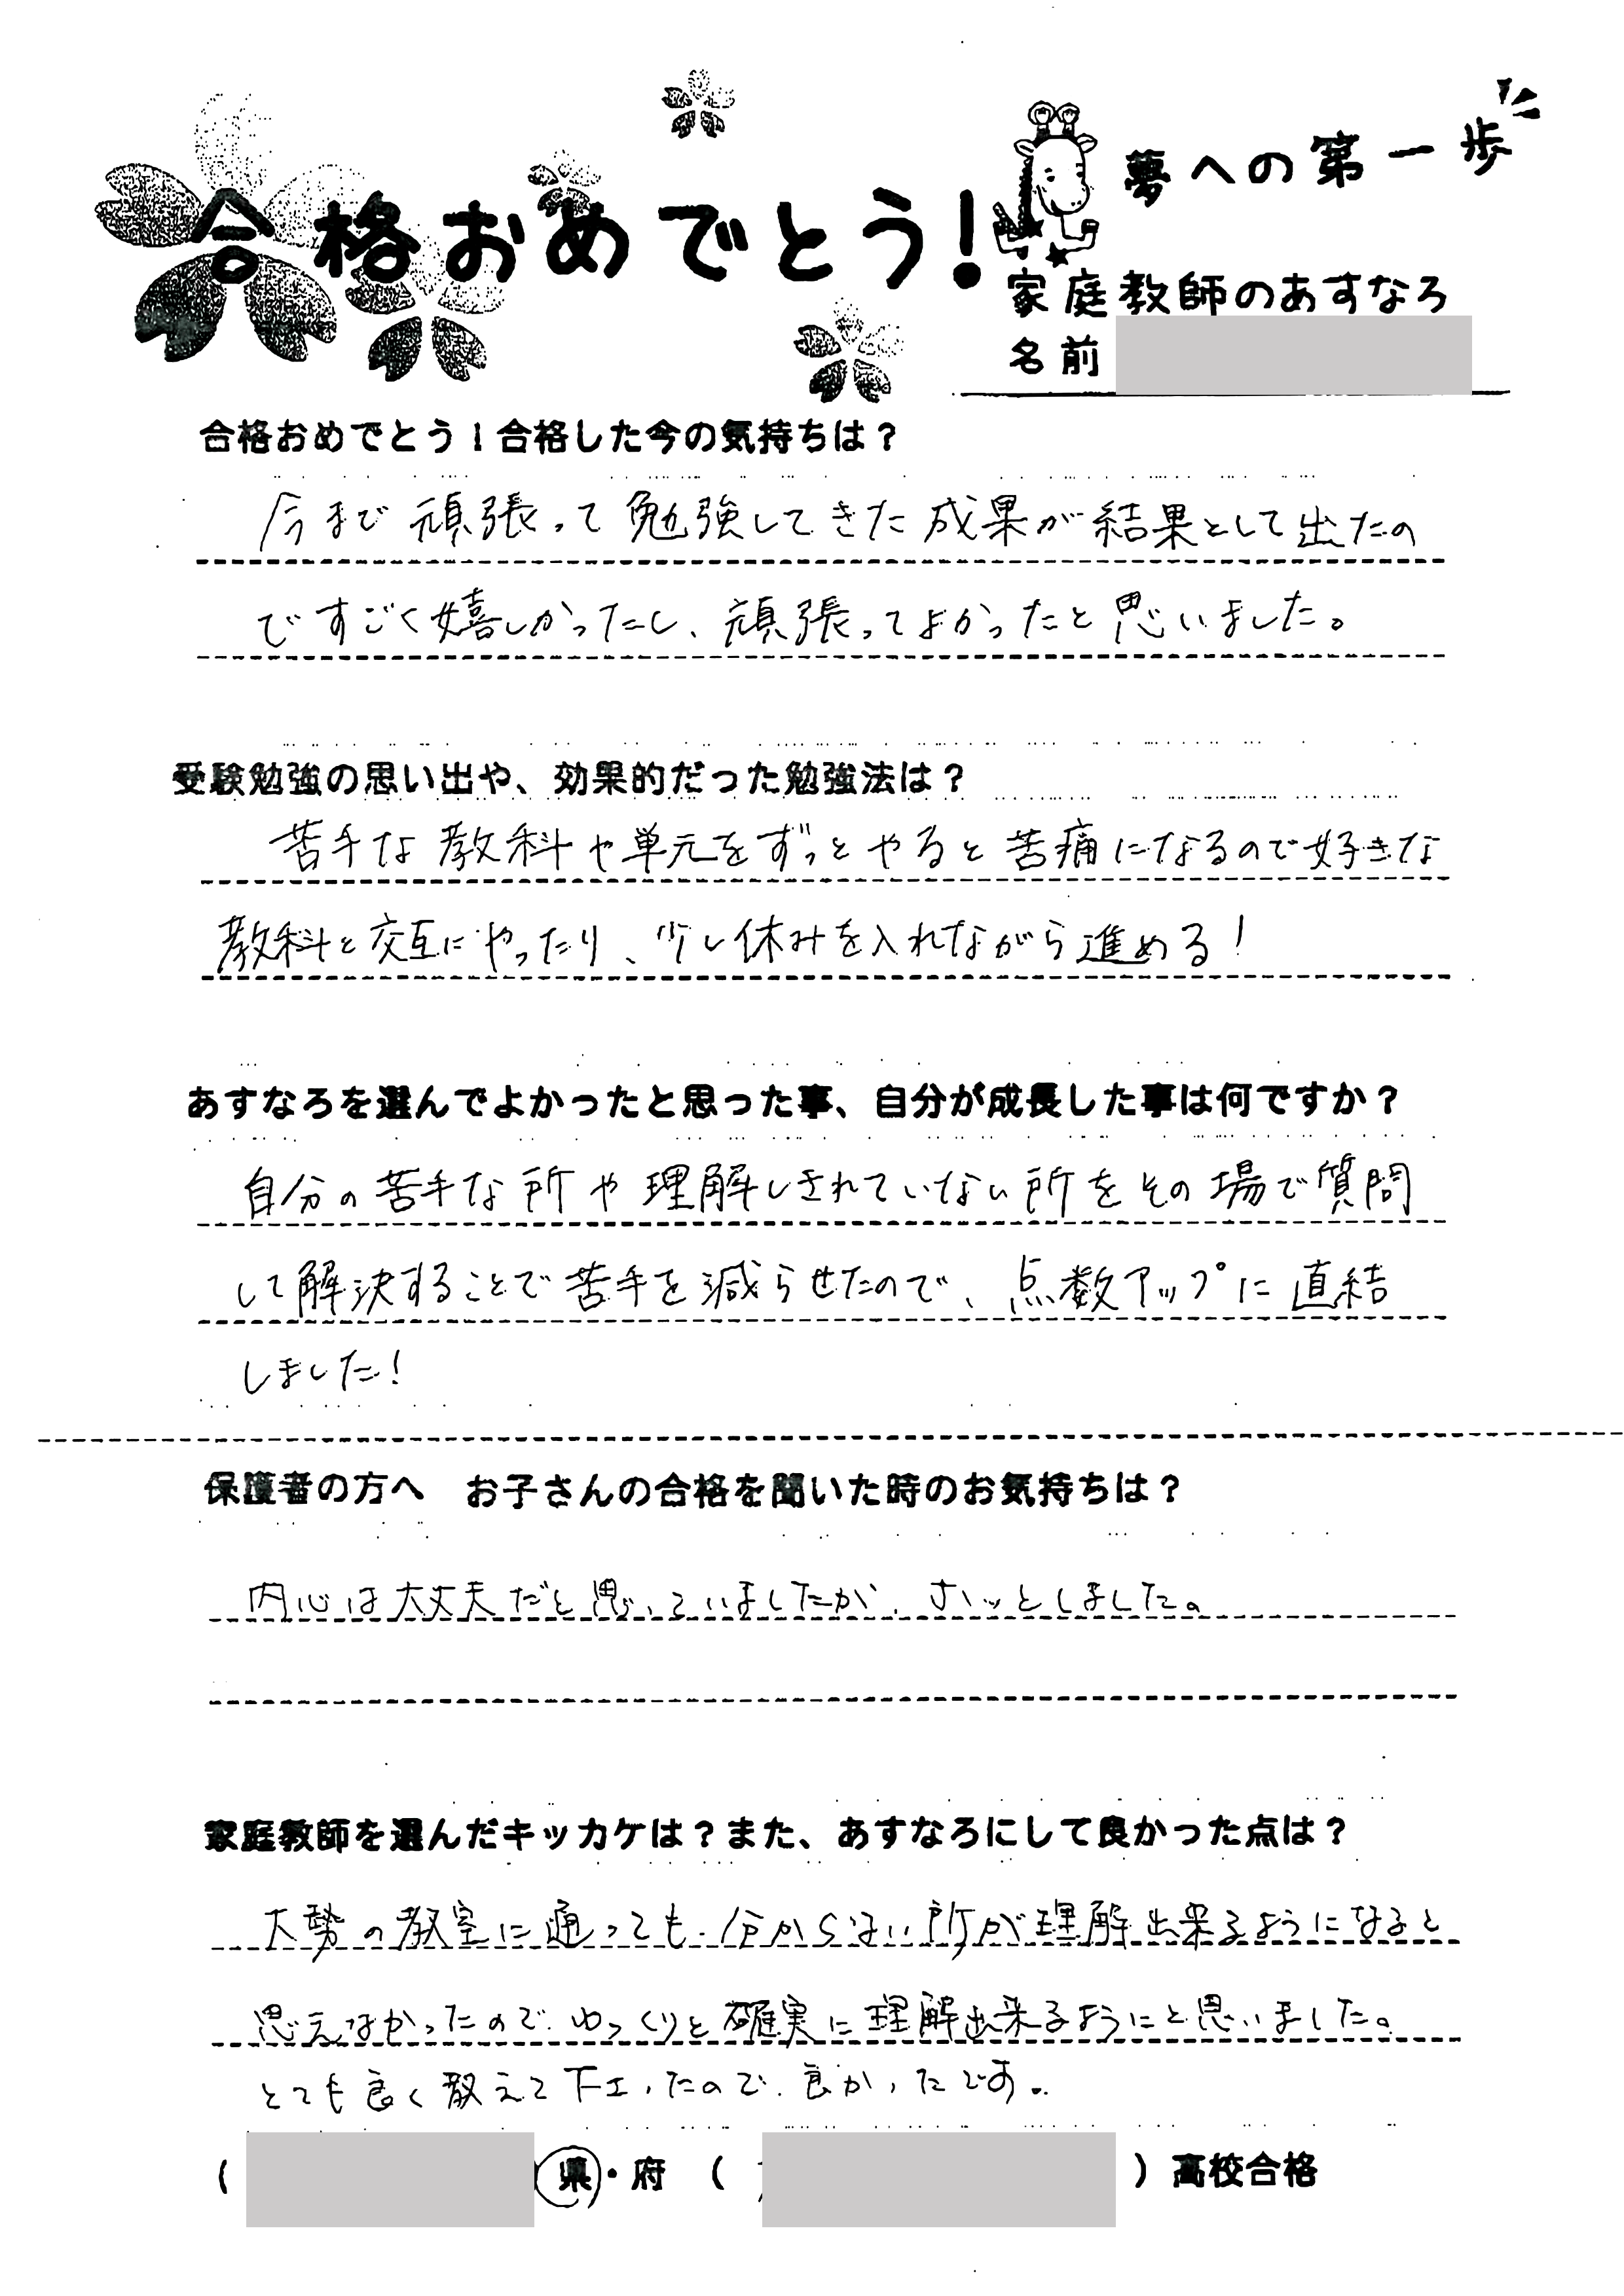 合格おめでとう!
夢への第一歩
家庭教師のあすなろ
名前
合格おめでとう!合格した今の気持ちは?
今まで頑張って勉強してきた成果が結果として出たの
ですごく嬉しかったし、頑張ってよかったと思いました。
受験勉強の思い出や、効果的だった勉強法は?
苦手な教科や単元をずっとやると苦痛になるので好きな
教科と交互にやったり、少し休みを入れながら進める!
あすなろを選んでよかったと思った事、自分が成長した事は何ですか?
自分の苦手な所や理解しきれていない所をその場で質問
して解決することで苦手を減らせたので、点数アップに直結
しました!
保護者の方へ お子さんの合格を聞いた時のお気持ちは?
内心は大丈夫だと思っていましたが、ホッとしました。
家庭教師を選んだキッカケは?また、あすなろにして良かった点は?
大勢の教室に通っても、分からない所が理解出来るようになると
思えなかったので、ゆっくりと確実に理解出来るようにと思いました。
とても良く教えて下さったので、良かったです。
( 県・府 ( )高校合格